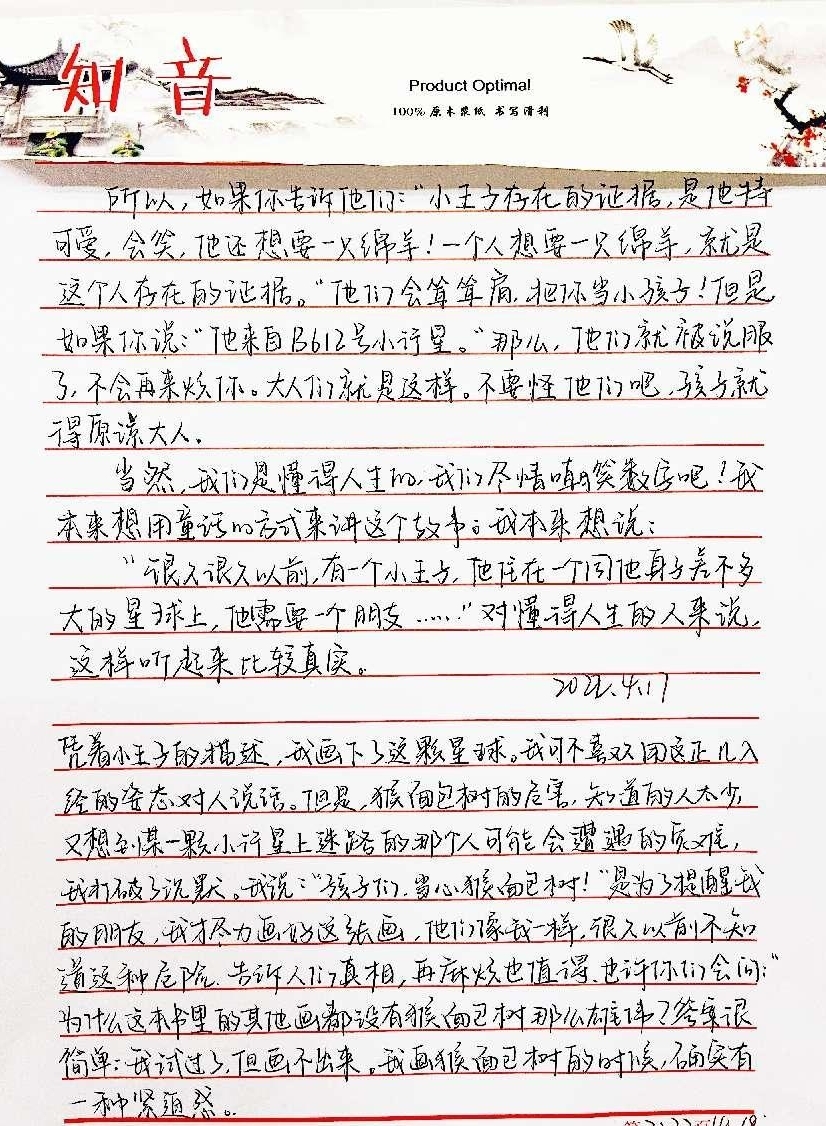 知音
Product Optimal
100% 原木浆纸 书写滑利
所以，如果你告诉他们：“小王子存在的证据，是他特
可爱，会笑，他还想要一只绵羊！一个人想要一只绵羊，就是
这个人存在的证据。”他们会耸耸肩，把你当小孩子！但是
如果你说：“他来自B612号小行星。”那么，他们就被说服
了，不会再来烦你。大人们就是这样。不要怪他们吧，孩子就
得原谅大人。
当然，我们是懂得人生的，我们尽情嘲笑数字吧！我
本来想用童话的方式来讲这个故事。我本来想说：
“很久很久以前，有一个小王子，他住在一个同他身子差不多
大的星球上，他需要一个朋友……”对懂得人生的人来说，
这样听起来比较真实。
2022.4.17
凭着小王子的描述，我画下了这颗星球。我可不喜欢用这正儿八
经的姿态对人说话。但是，猴面包树的危害，知道的人太少，
又想到某一颗小行星上迷路的那个人可能会遭遇的灾难，
我打破了沉默。我说：“孩子们，当心猴面包树！”是为了提醒我
的朋友，我才尽力画好这张画，他们像我一样，很久以前不知
道这种危险。告诉人们真相，再麻烦也值得。也许你们会问：“
为什么这本书里的其他画都没有猴面包树那么雄伟？答案很
简单：我试过了，但画不出来。我画猴面包树的时候，确实有
一种紧迫感。